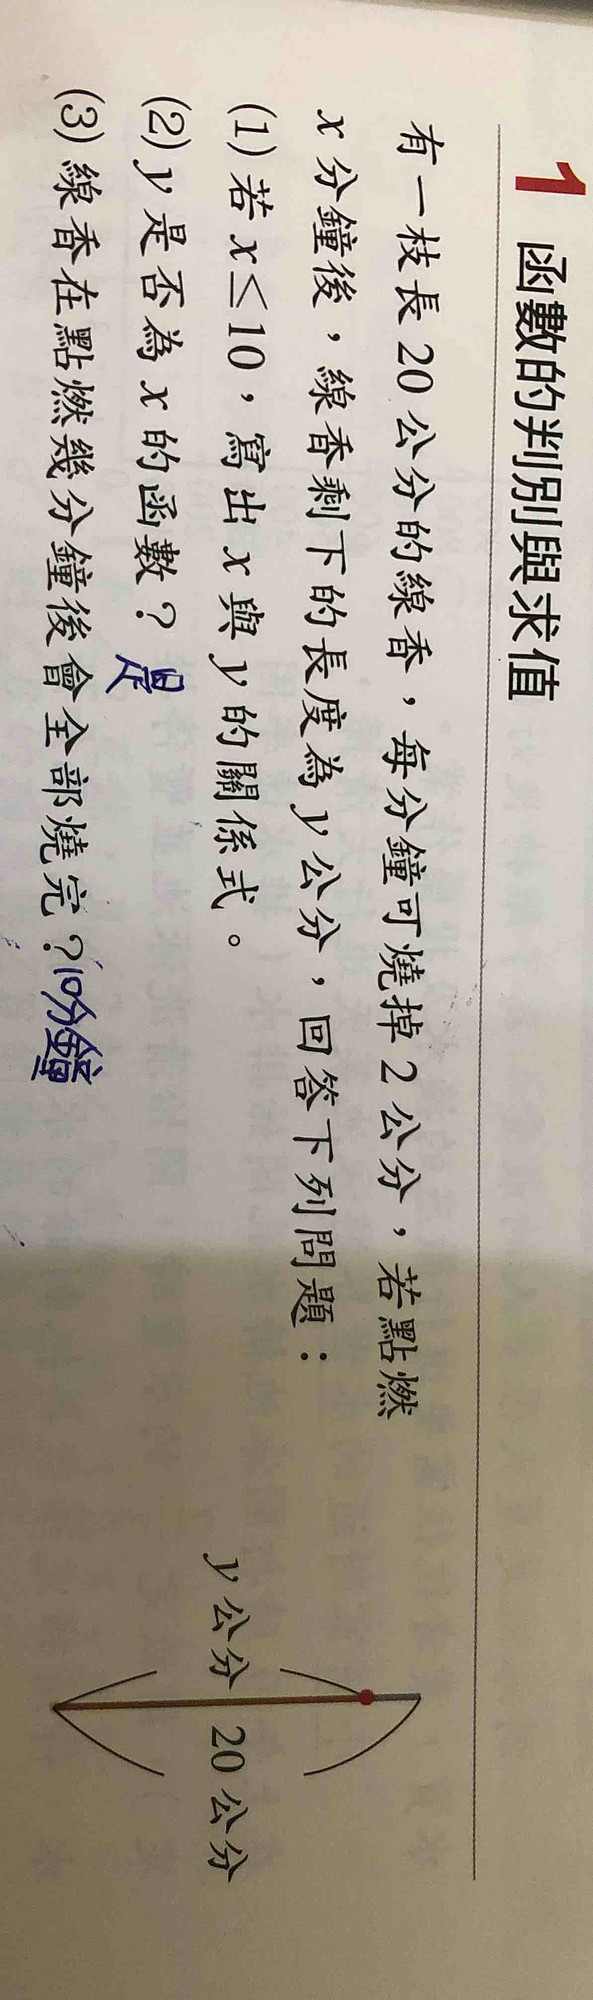 1 函數的判別與求值
有一枝長20公分的線香，每分鐘可燒掉2公分，若點燃
x分鐘後，線香剩下的長度為y公分，回答下列問題：
(1)若x≤10，寫出x與y的關係式。
(2)y是否為x的函數？是
(3)線香在點燃幾分鐘後會全部燒完？10分鐘
y公分 20公分